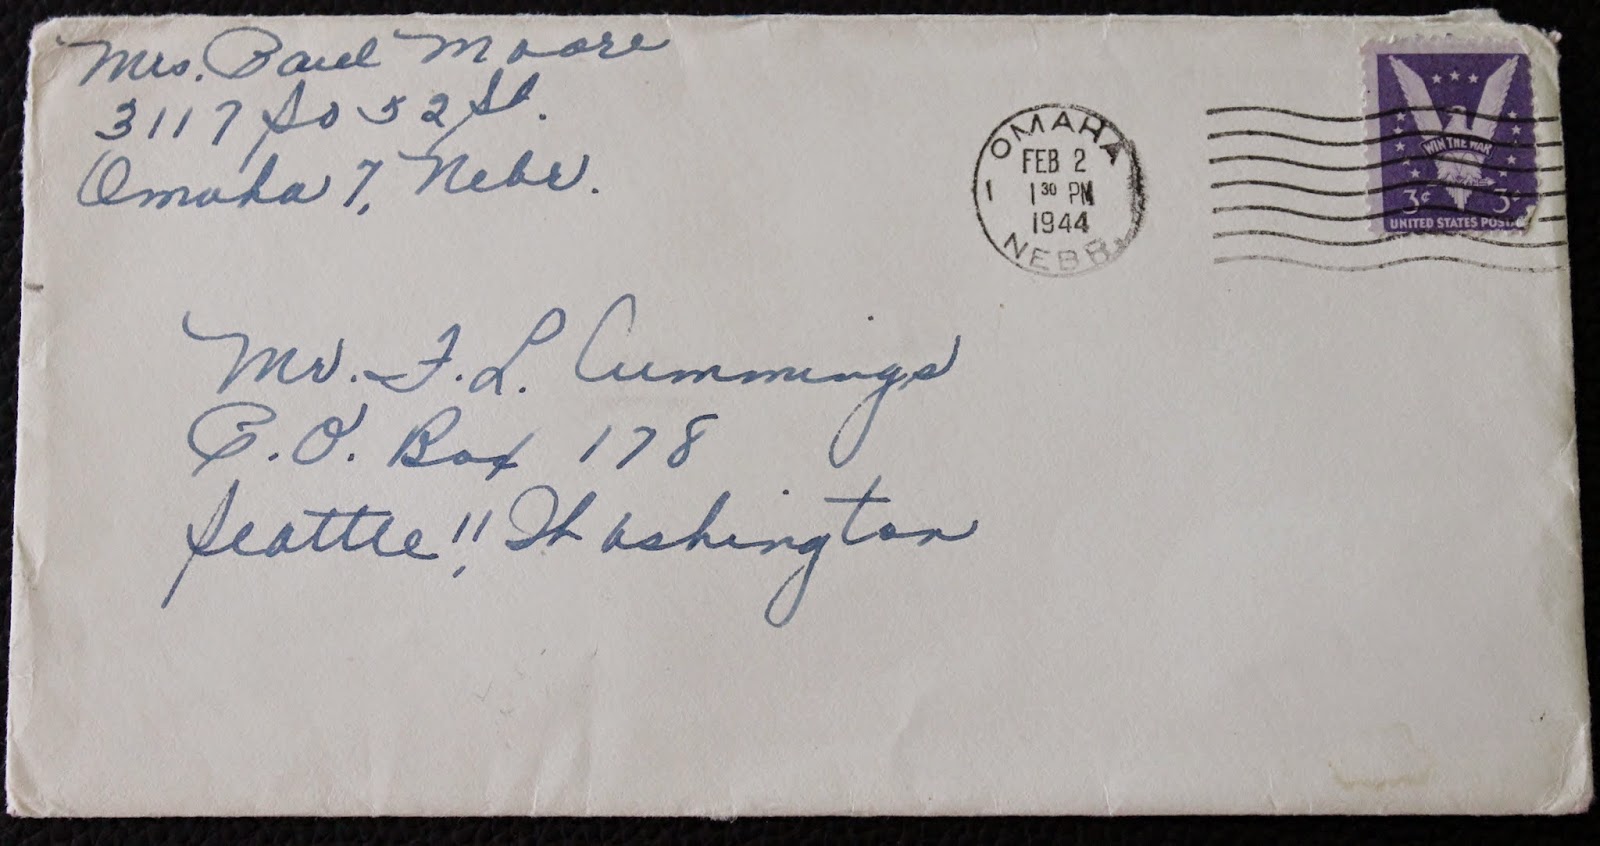 Mrs. Paul Moore
3117 So 52 St.
Omaha 7, Nebr.
OMAHA
1
FEB 2
1 30 PM
1944
NEBR
WIN THE WAR
3¢ 3¢
UNITED STATES POSTAGE
Mr. F. L. Cummings
P.O. Box 178
Seattle 11, Washington